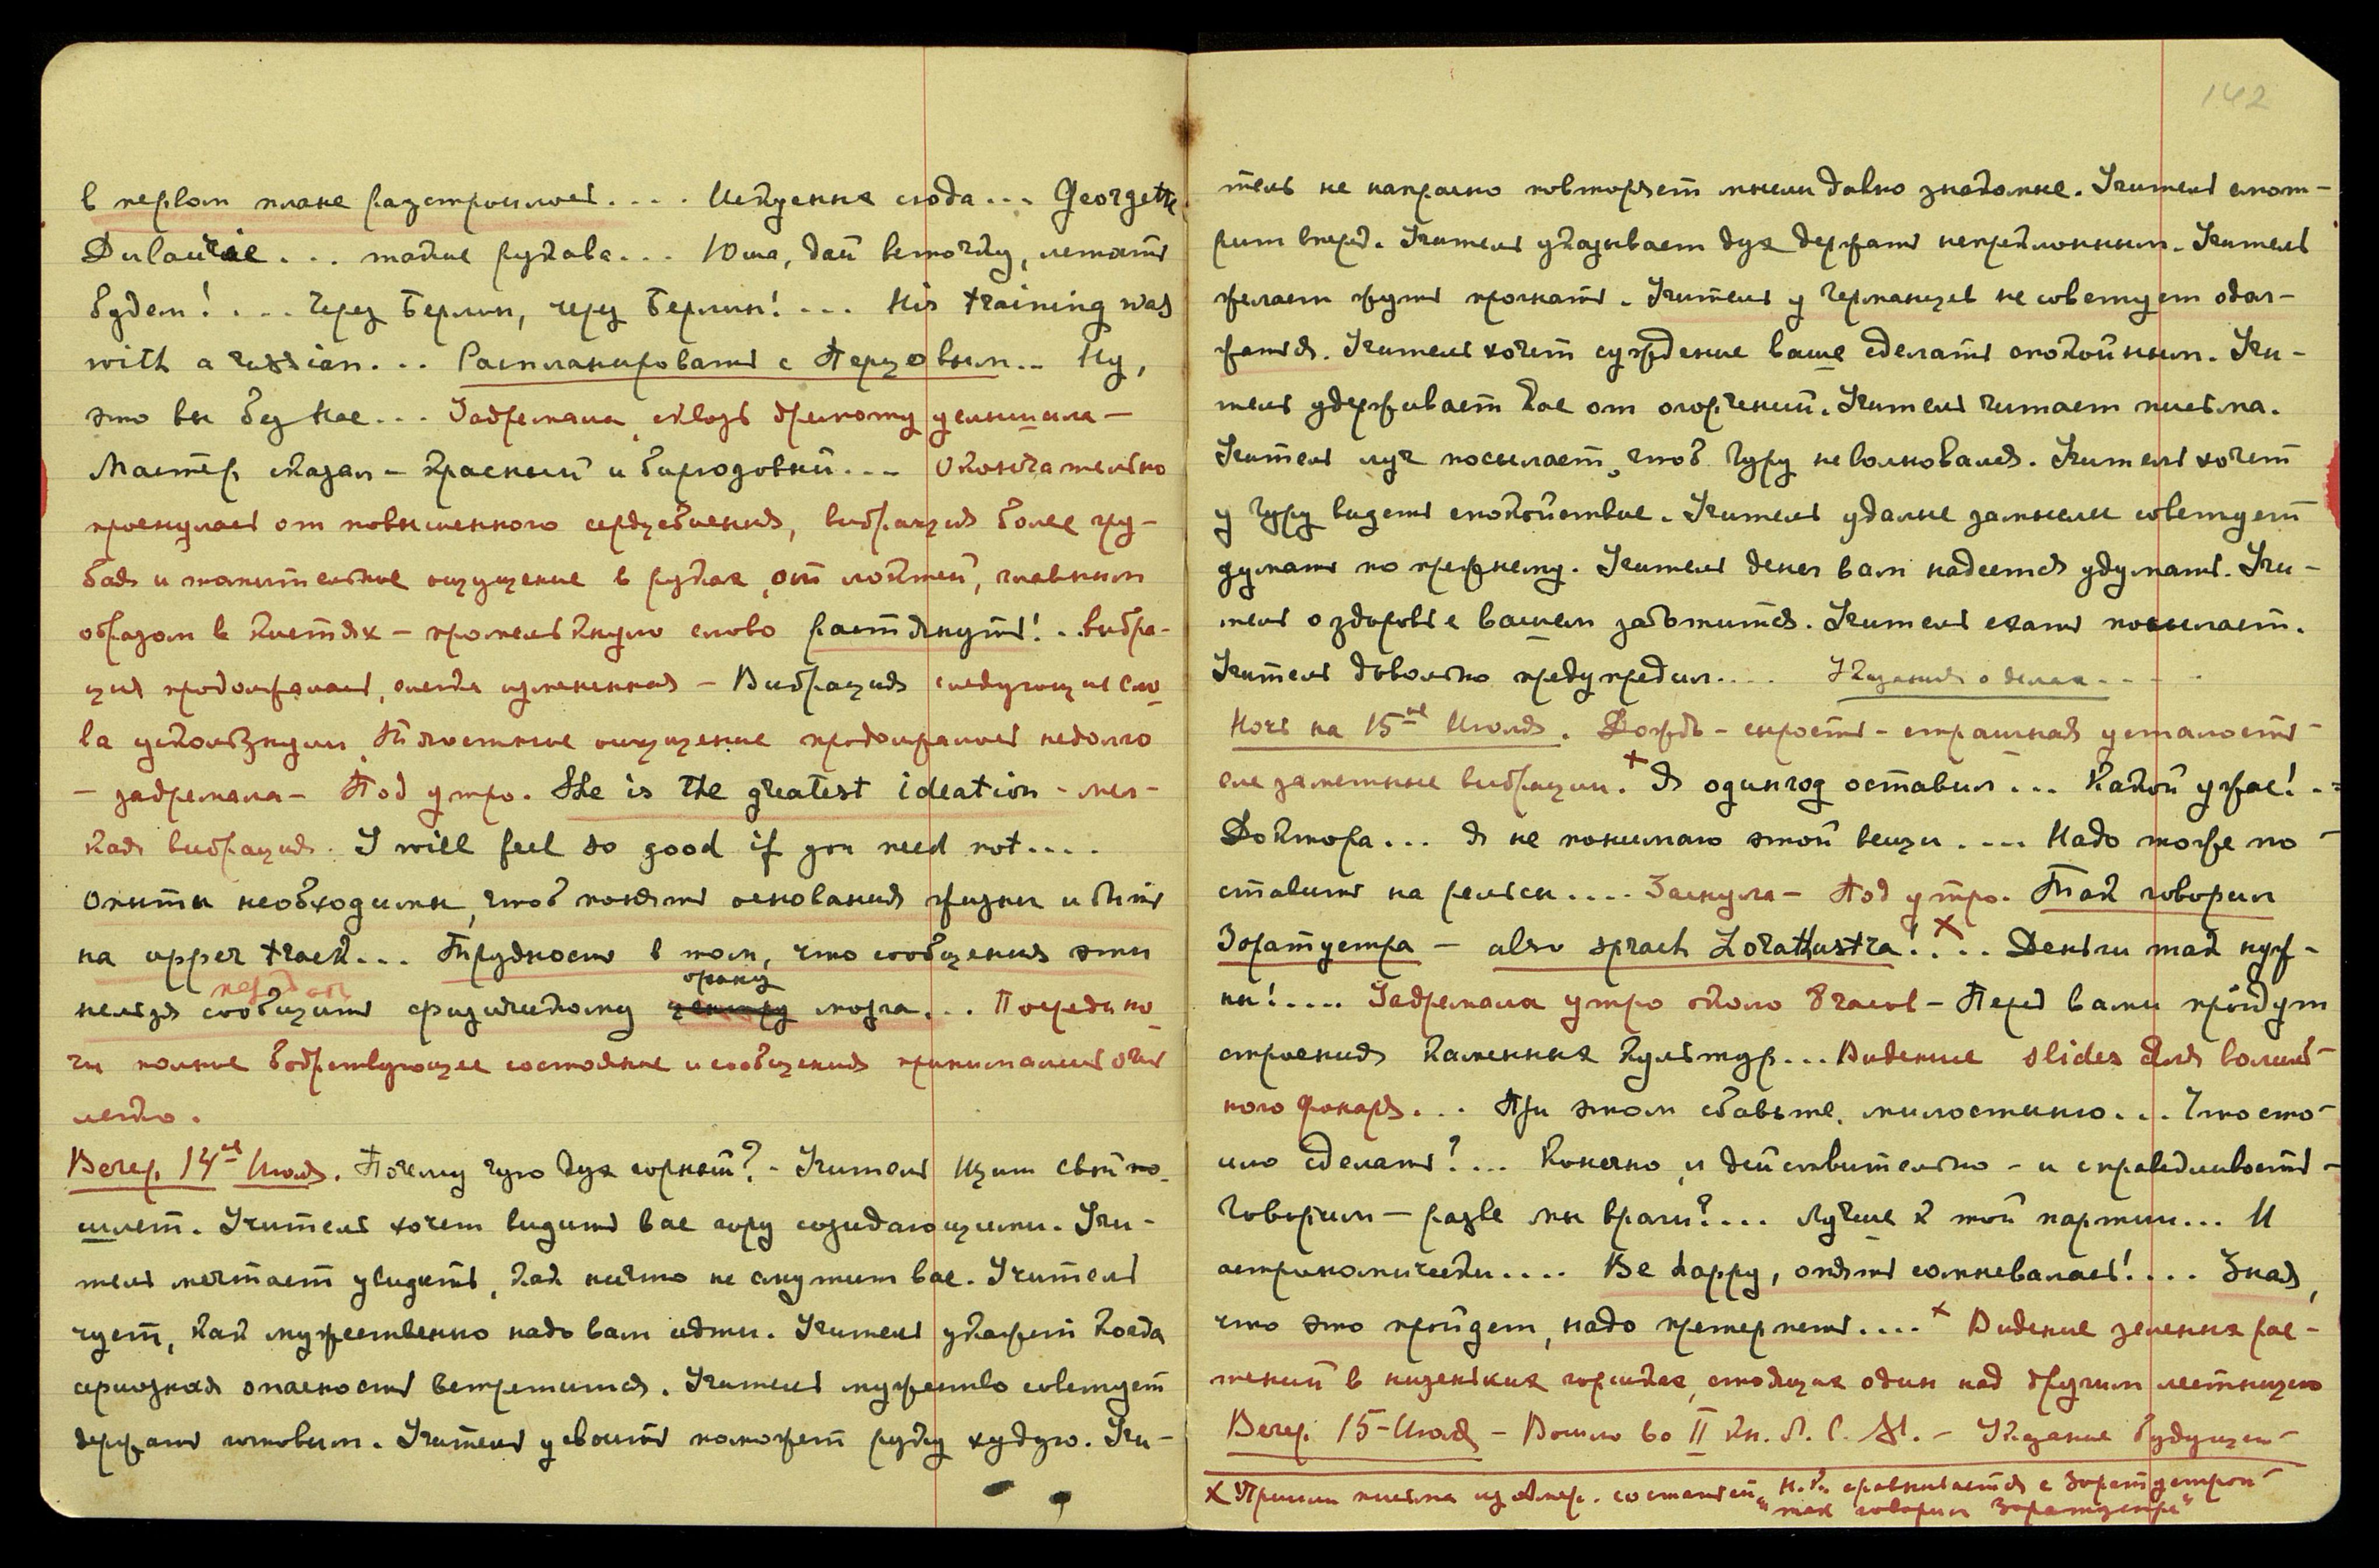 в первом плане разстроилось.... Искусення сюда... Georgette
... такие рукава... Юша, дай веточку, летать
будем!.... Через Берлин, через Берлин!... His training was
with a russian... Распланировать с Перцовым... Ну,
это вы без нас... Задремала, сквозь дремоту услышала –
Мастер сказал – красный и бирюзовый... Окончательно
проснулась от повышенного сердцебиения, вибрация более гру-
бая и томительное ощущение в руках, от локтей, главным
образом в кистях – промелькнуло слово растянуть!.. вибра-
ция продолжалась, слегка измененная – Вибрация следующие сло-
ва ускользнули, тягостное ощущение продолжалось недолго
– задремала – Под утро. She is the greatest ideation – мел-
кая вибрация. I will feel so good if you need not....
Опыты необходимы, чтоб понять основания жизни и быть
на upper track... Трудность в том, что сообщения эти
передать
органу
нельзя сообщить физическому центру мозга... Посреди но-
чи полное бодрствующее состояние и сообщения принимались очень
легко.
Вечер. 14-ое Июля. Почему чую дух горный? – Учитель щит свой по-
шлет. Учитель хочет видеть вас гору созидающими. Учи-
тель мечтает увидеть, как ничто не смутит вас. Учитель
чует, как мужественно надо вам идти. Учитель укажет когда
серьозная опасность встретится. Учитель мужество советует
держать готовым. Учитель усвоить поможет руку худую. Учи-
142
тель не напрасно повторяет мысли давно знакомые. Учитель смот-
рит вперед. Учитель указывает дух держать непреклонным. Учитель
желает жуть прогнать. Учитель у Германцев не советует одол-
жаться. Учитель хочет суждение ваше сделать спокойным. Учи-
тель удерживает вас от огорчений. Учитель читает письма.
Учитель луч посылает, чтоб Гуру не волновался. Учитель хочет
у Гуру видеть спокойствие. Учитель удалые замыслы советует
думать по прежнему. Учитель денег вам надеется удумать. Учи-
тель о здоровье вашем заботится. Учитель ехать посылает.
Учитель довольно предупредил.... Указания о делах....
Ночь на 15-ое Июля. Дождь – сырость – страшная усталость –
еле заметные вибрации. × Я один год оставил... Какой ужас!..
Доктора... Я не понимаю этой вещи.... Надо тоже по-
ставить на рельсы.... Заснула – Под утро. Так говорил
Заратустра – also sprach Zorathustra!×... Деньги так нуж-
ны!.... Задремала утро около 8 часов – Перед вами пройдут
строения каменных культур... Видение slides для волшеб-
ного фонаря... При этом сбавьте, милостиню... Что сто-
ило сделать?... Конечно, и действительно – и справедливость –
Говорил – разве мы враги?... Лучше к той партии... И
астрономически.... Be happy, опять сомневалась!.... Зная,
что это пройдет, надо претерпеть....× Видение зеленых рас-
тений в низеньких горшках, стоящих один над другим лестницею
Вечер. 15-Июля – Вошло во II кн. Л. С. М. – Указание будущего –
× Пришли письма из Амер. со статьей, Н.К. сравнивается с Заратустрой –
"так говорил Заратустра"